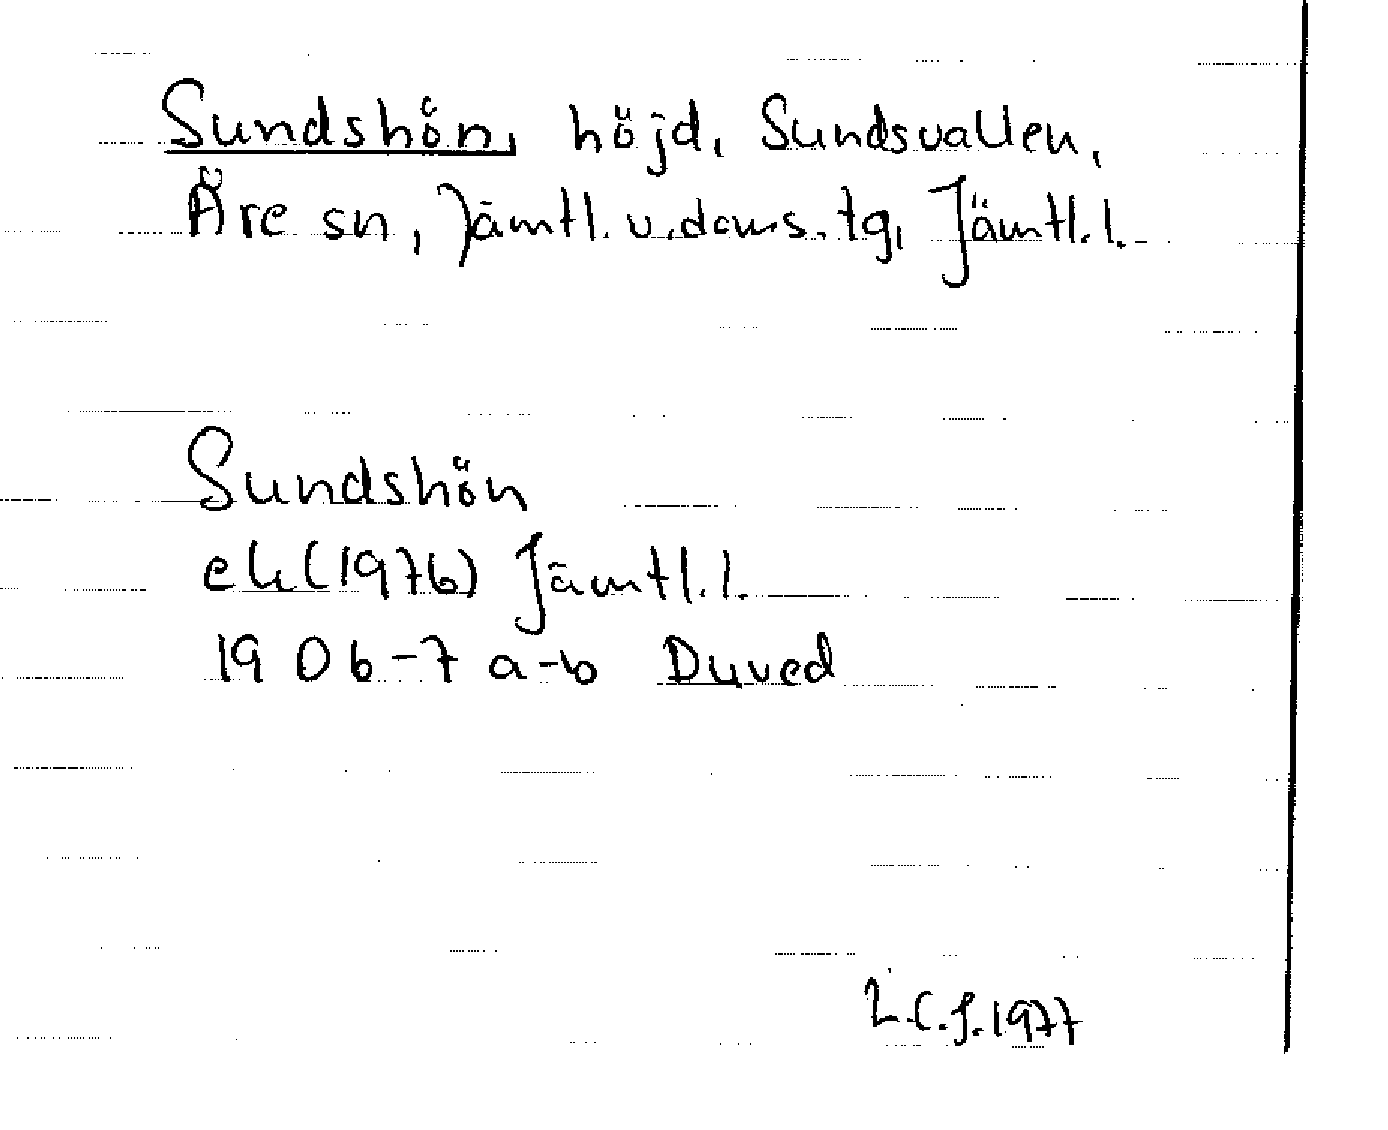 Sundshön, höjd, Sundsvallen,
Åre sn, Jämtl. v. doms. tg, Jämtl. l.
Sundshön
ek (1976) Jämtl. l.
19 D 6-7 a-b Duved
L.C.J. 1977